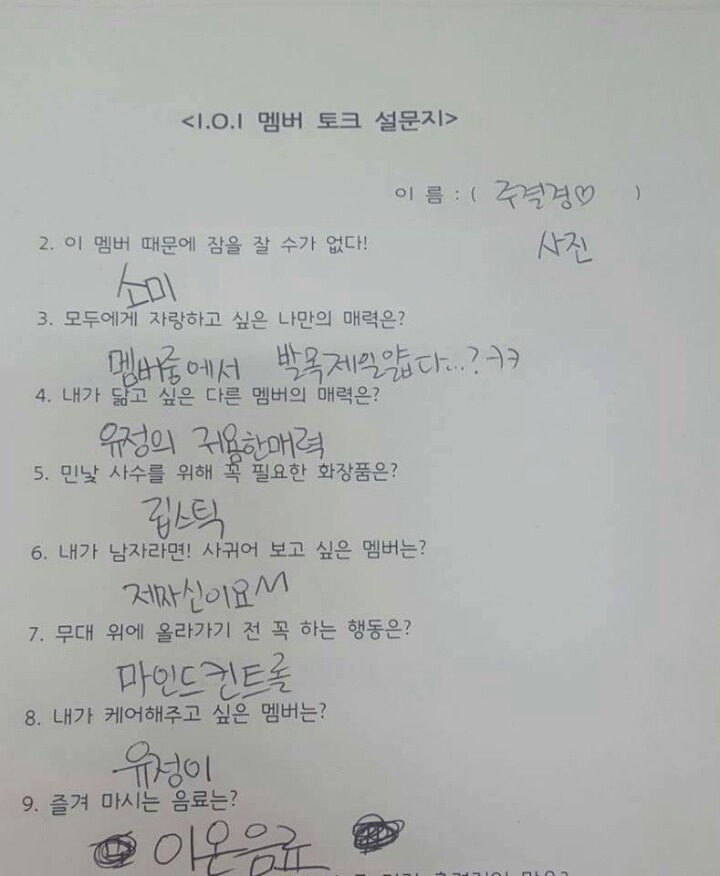 <I.O.I 멤버 토크 설문지>
이 름 : ( 주결경♡ )
2. 이 멤버 때문에 잠을 잘 수가 없다!
사진
소미
3. 모두에게 자랑하고 싶은 나만의 매력은?
멤버중에서 발목제일얇다...?ㅋㅋ
4. 내가 닮고 싶은 다른 멤버의 매력은?
유정의 귀용한매력
5. 민낯 사수를 위해 꼭 필요한 화장품은?
립스틱
6. 내가 남자라면! 사귀어 보고 싶은 멤버는?
제자신이요
7. 무대 위에 올라가기 전 꼭 하는 행동은?
마인드컨트롤
8. 내가 케어해주고 싶은 멤버는?
유정이
9. 즐겨 마시는 음료는?
이온음류